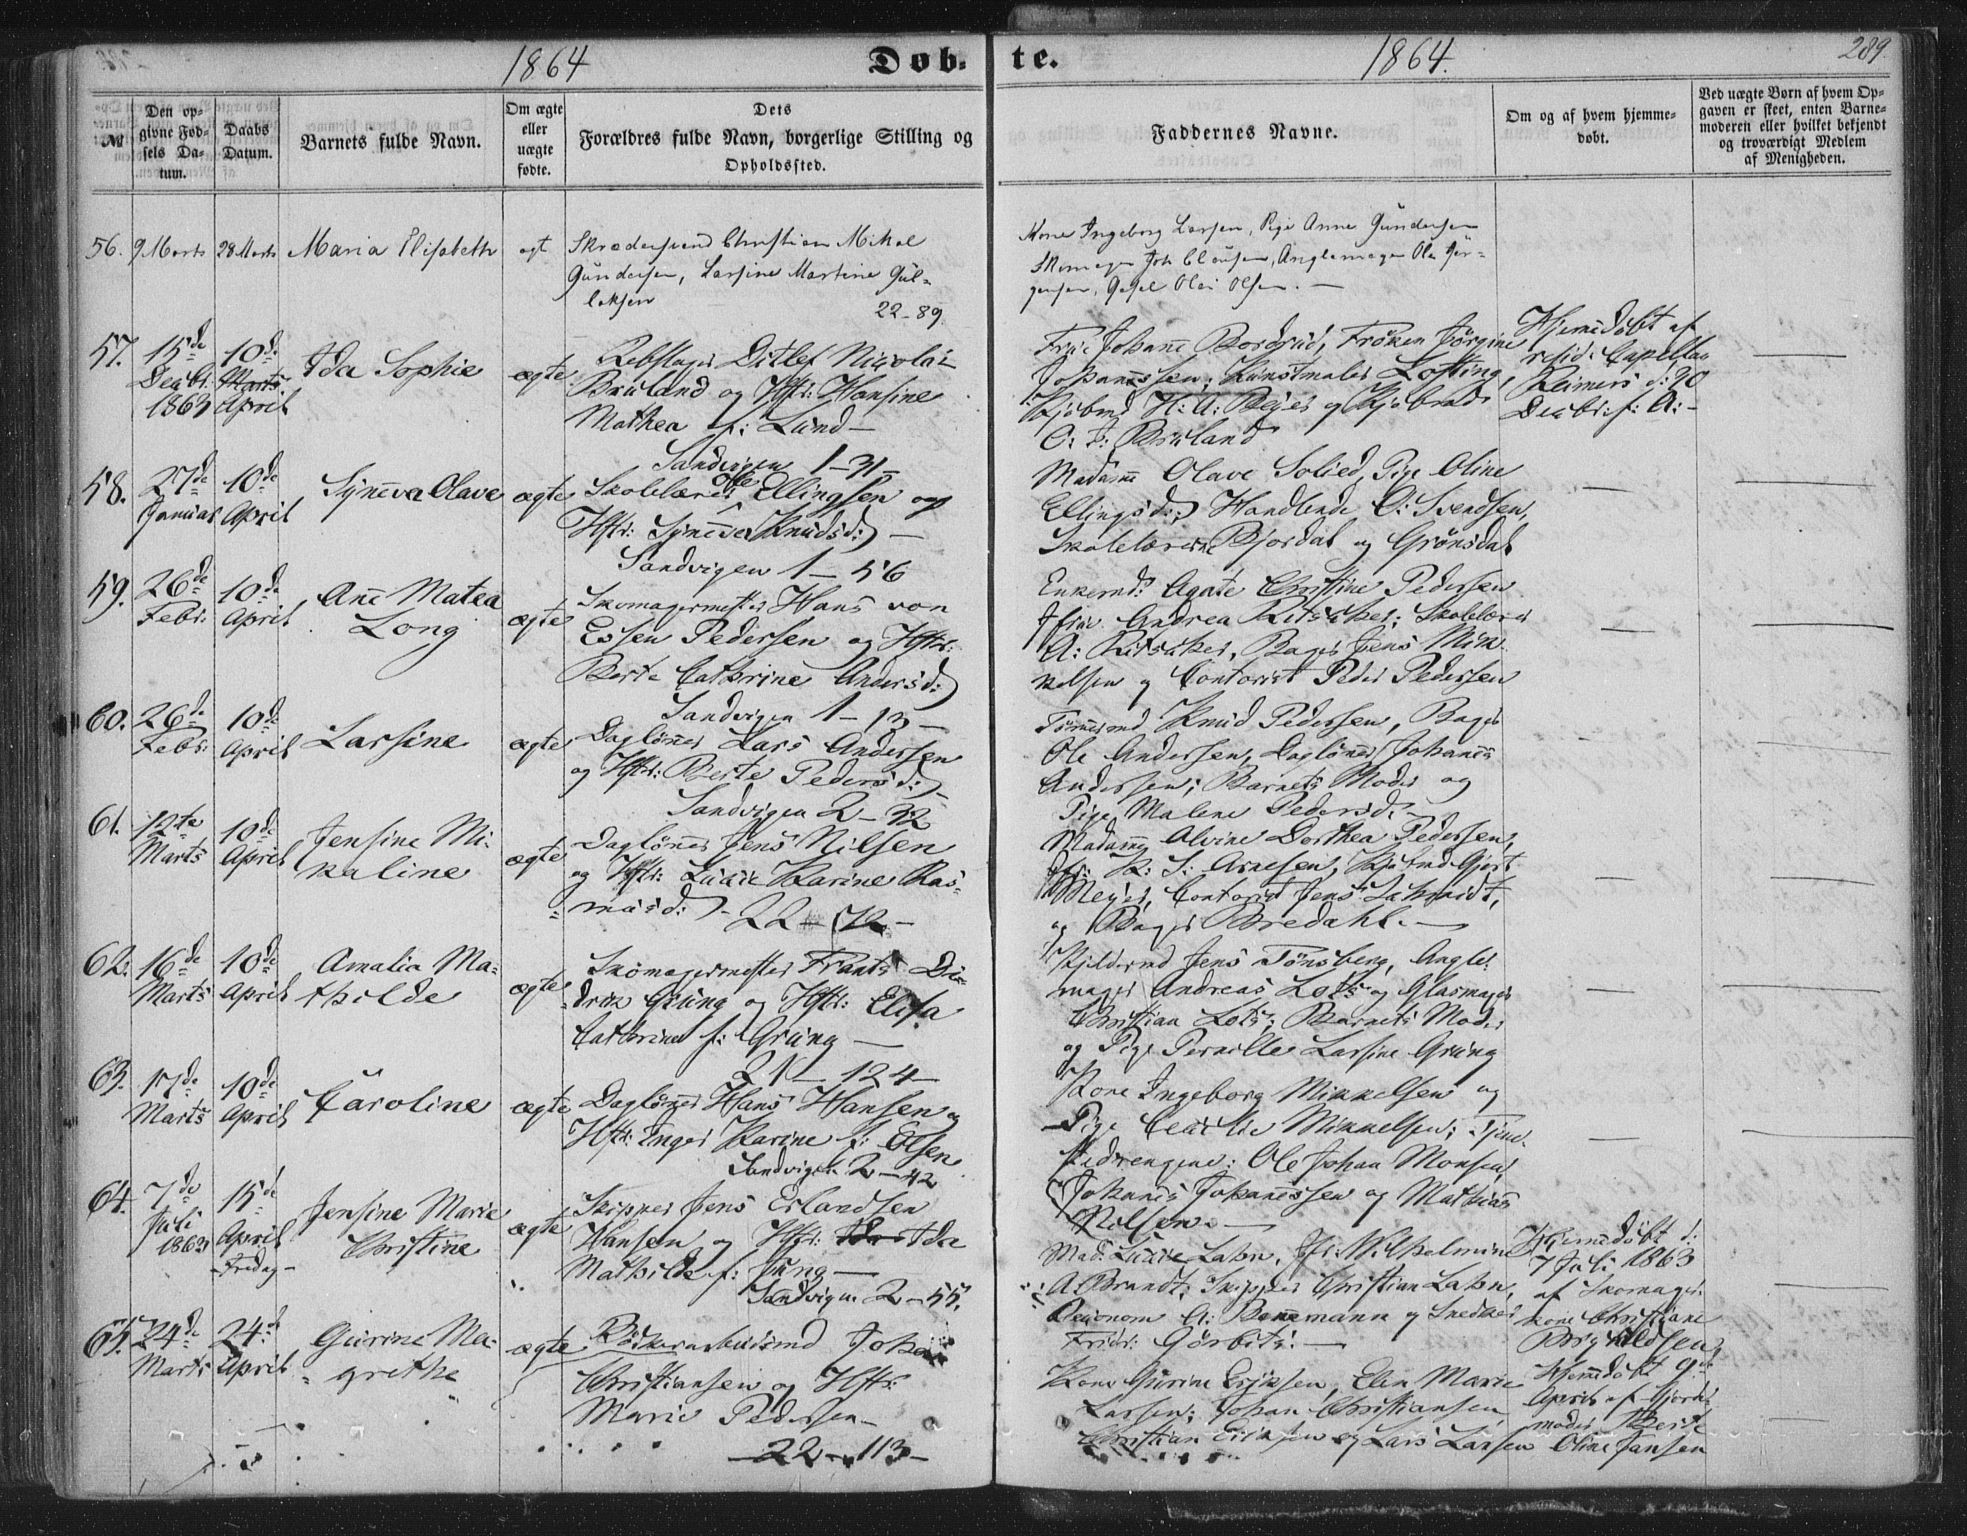 1864
Døb-
te.
1864.
289.
№
Den op-
givne Fød-
sels Da-
tum.
Daabs
Datum.
Barnets fulde Navn.
Om ægte
eller
uægte
fødte.
Dets
Forældres fulde Navn, borgerlige Stilling og
Opholdssted.
Faddernes Navne.
Om og af hvem hjemme-
døbt.
Ved uægte Børn af hvem Op-
gaven er skeet, enten Barne-
moderen eller hvilket bekjendt
og troværdigt Medlem
af Menigheden.
56. 9 Marts 28 Marts Maria Elisabeth ægt
Skrædersvend Christian Mikal
Gundersen, Larsine Martine Gul-
leksen
22-89.
Kone Ingeborg Larsen, Pige Anne Gundersen
Skomager Joh Clausen, Ole Jør-
gensen, Olai Olsen. —
57. 15de Decbr: 1863 10de Marts April Ida Sophie ægte
Rebslager Ditlef Nicolai
Bruland og Hstr: Hansine
Mathea f: Lund —
Sandvigen 1-31-
Frue Johanne Bordrud, Frøken Jørgine
Johannessen, Kunstmaler Lotting,
Kjøbmd H: A: Beyer og Kjøbmd
O. J: Bruland
Hjemmedøbt af
resid: Capellan
Reimers d: 20
Decbr: f: A: -
58. 27de Januar 10de April Synneva Olave ægte
Skolelærer Ole Ellingsen og
Hstr: Synneva Knudsd: —
Sandvigen 1-56
Madame Olave Solied, Pige Oline
Ellingsd:, Handlende O: Svendsen,
Skolelærerne Bjordal og Grønsdal
59. 26de Febr: 10de April Anne Matea
Long ægte
Skomagermester Hans von
Essen Pedersen og Hstr:
Berte Cathrine Andersd:
Sandvigen 1-13-
Enkemd: Agate Christine Pedersen
Andrea Skolelærer
A: Bager Jens Mik-
kelsen og Contorist Peder Pedersen
60. 26de Febr: 10de April Larsine ægte
Dagløner Lars Andersen
og Hstr: Berte Pedersd: -
Sandvigen 2-32
Tømmermd Knud Pedersen, Bager
Ole Andersen, Dagløner Johannes
Andersen; Barnets Moder og
Pige Malene Pedersd: -
61. 12te Marts 10de April Jensine Mi-
kaline ægte
Dagløner Jens Nilsen
og Hstr: Karine Ras-
musd: -
22-72-
Madame Alvine Dorthea Pedersen,
K: S: Arnesen, Kjøbmd Gjert
Meyer, Contorist Jens Schmidt,
og Bager Bredahl. —
62. 16de Marts 10de April Amalia Ma-
thilde ægte
Skomagermester Frants Die-
drik Grung og Hstr: Elisa
Cathrine f: Grung —
21-124-
Jens Tønsberg,
mager Andreas Lots og Glasmager
Christian Lots; Barnets Moder
og Pige Pernille Larsine Grung
63. 17de Marts 10de April Caroline ægte
Dagløner Hans Hansen og
Hstr: Inger Karine f: Olsen
Sandvigen 2-42
Kone Ingeborg Mikkelsen og
Pige Mikkelsen; Tjene-
stedrengene: Ole Johan Monsen,
Johannes Johannessen og Mathias
Nilsen. —
64. 7de Juli 1863 15de April
-Fredag- Jensine Marie
Christine ægte
Skipper Jens Erlandsen
Hansen og Hstr: Ida
Mathilde f: Jung —
Sandvigen 2-55.
Mad: Lahn, Jfr: Wilhelmine
A: Brandt; Skipper Christian Lahn,
Oeconom A: Bannemann og Snedker
Fridr: Gørbits: —
Hjemmedøbt d:
7 Juli 1863
af Skomager-
kone Christiane
65. 24de Marts 24de April Gurine Ma-
grethe ægte
Bødkerarbeidsmd Johan
Christiansen og Hstr:
Marie Pedersen —
22-113-
Kone Gurine Eriksen, Elen Marie
Larsen; Johan Christiansen,
Christian Eriksen og Lars Larsen
Hjemmedøbt 9de
April af Gjorde-
moder Berte
Oline Jansen